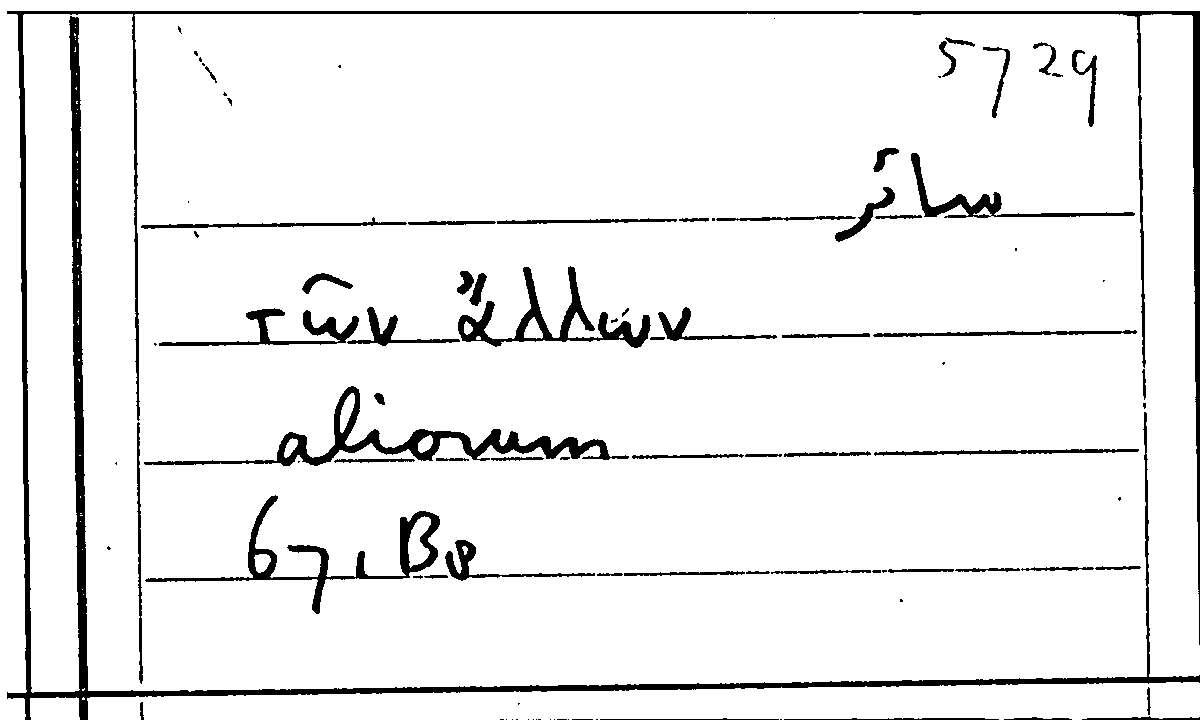 5729
سائر
τῶν ἄλλων
aliorum
67, B8